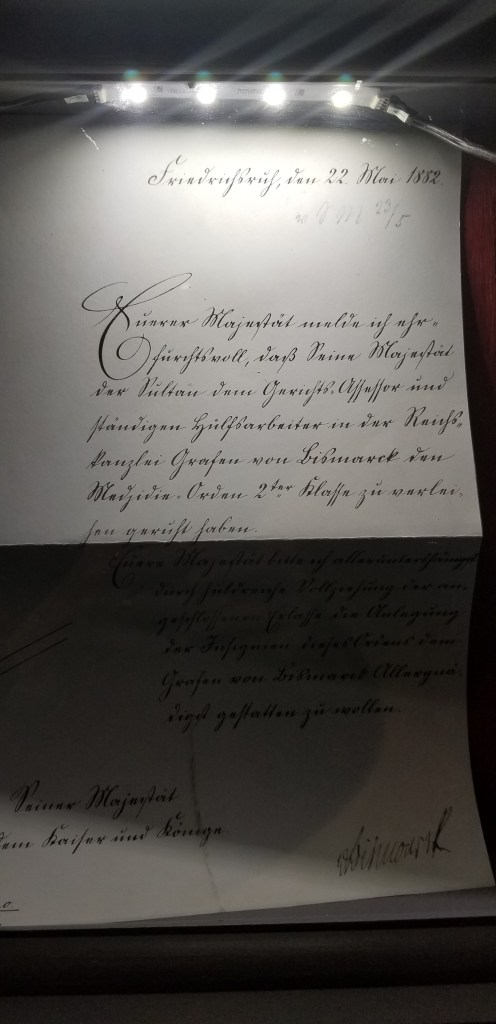 Friedrichsruh, den 22. Mai 1882.
23/5
Euerer Majestät melde ich ehr-
furchtsvoll, daß Seine Majestät
der Sultan dem Gerichts-Assessor und
ständigen Hülfsarbeiter in der Reichs-
kanzlei Grafen von Bismarck den
Medjidie-Orden 2ter Klasse zu verlei-
hen geruht haben.
Euere Majestät bitte ich allerunterthänigst
durch huldreiche Vollziehung des an-
geschlossenen Erlasses die Anlegung
der Insignien dieses Ordens dem
Grafen von Bismarck Allergnä-
digst gestatten zu wollen.
Seiner Majestät
dem Kaiser und Könige
v Bismarck